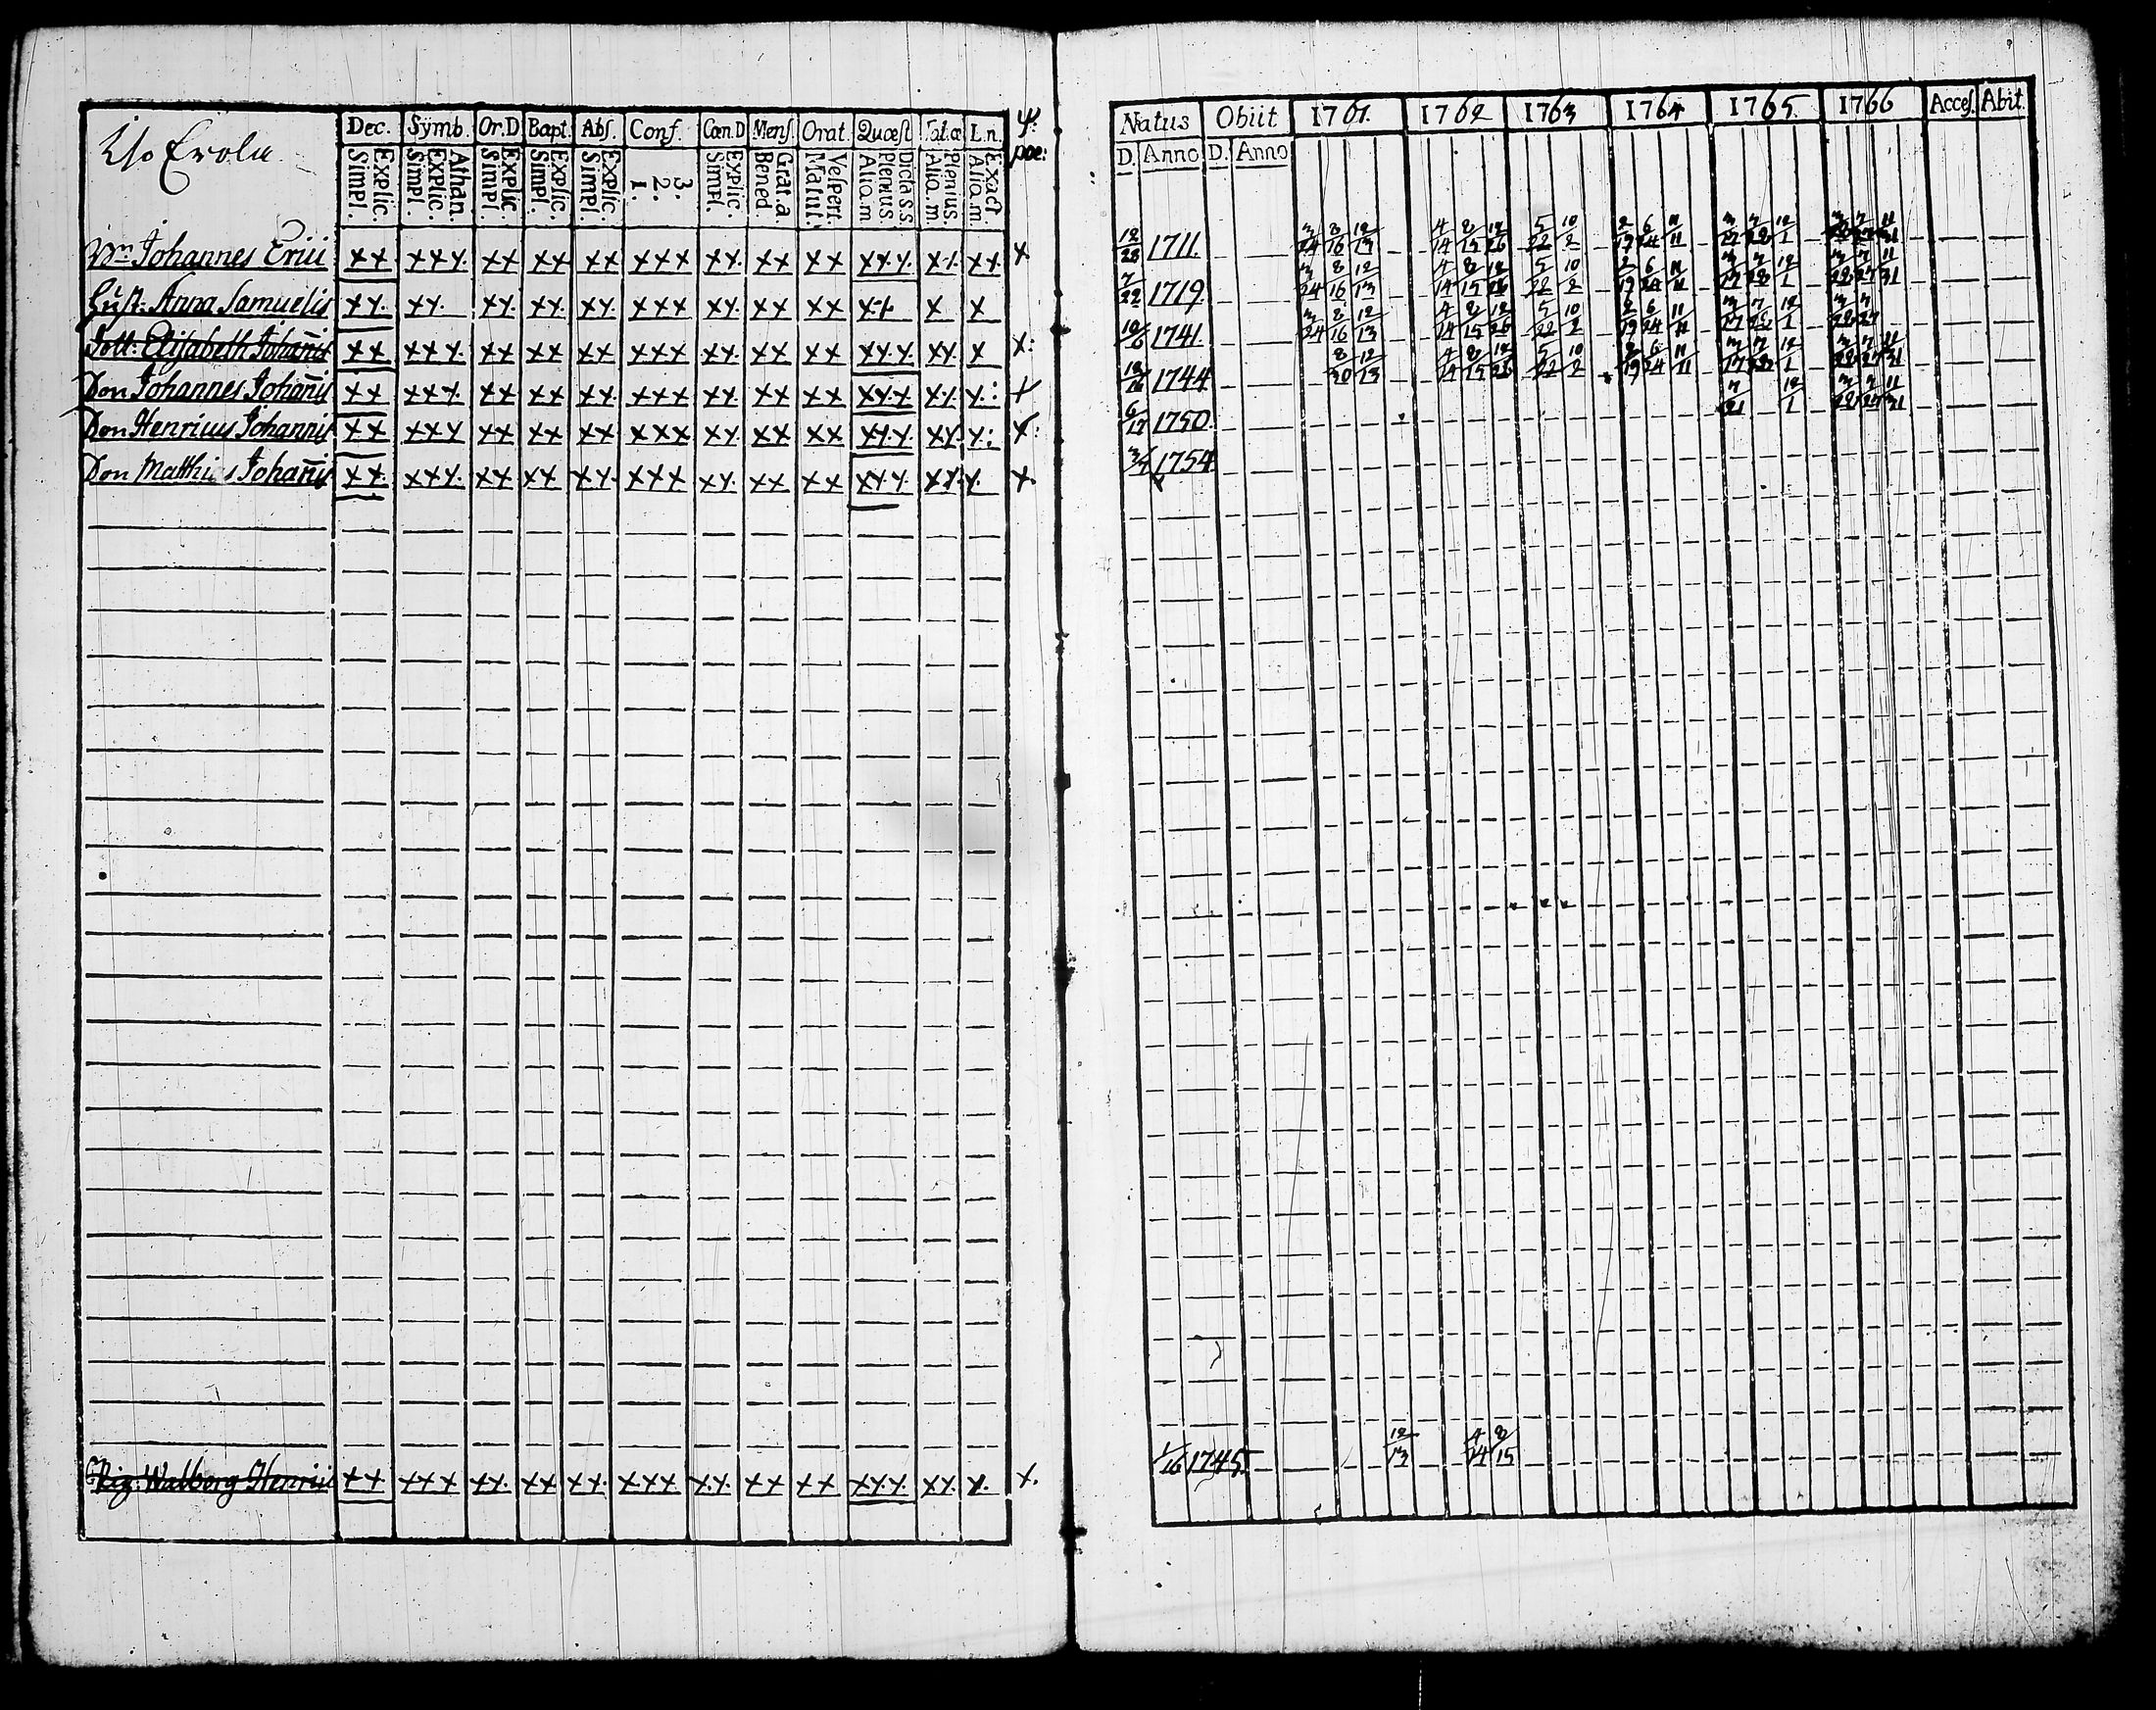 Iso Erola
Dec. Symb. Or.D Bapt. Abs. Conf. Cœn.D Mens. Orat. Quæst Tal.œ L.n. Ψ:
poe:
Explic. Simpl. Athan. Explic. Simpl. Explic. Simpl. Explic. Simpl. Explic. Simpl. 3. 2. 1. Explic. Simpl. Grat.a Bened. Vespert. Matut. Dicta s.s. Plenius. Alio.m Plenius. Alio.m. Exact. Alio.m.
Johannes Erici xx xxx xx xx xx xxx xx xx xx xxx xx xx x
Hust: Anna Samuelis xx xx xx xx xx xxx xx xx xx xx x x
Dott: Elisabeth Johañis xx xxx xx xx xx xxx xx xx xx xxx xx x x:
Don Johannes Johañis xx xxx xx xx xx xxx xx xx xx xxx xx x: x
Don Henricus Johannis xx xxx xx xx xx xxx xx xx xx xxx xx x: x:
Don Matthias Johañis xx xxx xx xx xx xxx xx xx xx xxx xx x. x.
Pig: Walborg Henrici xx xxx xx xx xx xxx xx xx xx xxx xx x. x.
Natus Obiit 1761. 1762 1763 1764 1765. 1766 Acces. Abit.
D. Anno D. Anno
12/28 1711. 3/24 8/16 12/13 4/14 8/15 12/26 5/22 10/2 2/19 6/24 11/11 3/17 7/28 12/1 3/28 7/27 11/31
7/22 1719 3/24 8/16 12/13 4/14 8/15 12/26 5/22 10/2 2/19 6/24 11/11 3/17 7/28 12/1 3/28 7/27 11/31
10/6 1741. 3/24 8/16 12/13 4/14 8/15 12/26 5/22 10/2 2/19 6/24 11/11 3/17 7/28 12/1 3/28 7/27
12/16 1744 8/30 12/13 4/14 8/15 12/26 5/22 10/2 2/19 6/24 11/11 3/17 7/28 12/1 3/28 7/27 11/31
6/12 1750. 7/21 12/1 3/28 7/27 11/31
3/4 1754
1/16 1745. 12/13 4/14 8/15